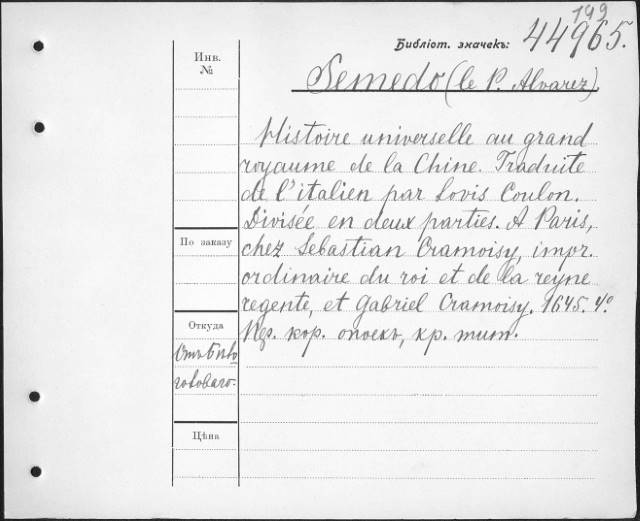 149
Библіот. значекъ: 44965.
Инв.
№
Semedo (le P. Alvarez).
Histoire universelle au grand
royaume de la Chine. Traduite
de l'italien par Lovis Coulon.
Divisée en deux parties. A Paris,
По заказу
chez Sebastian Cramoisy, impr.
ordinaire du roi et de la reyne
regente, et Gabriel Cramoisy. 1645. 4º.
Откуда
кор. опоекъ, кр. тит.
Цѣна